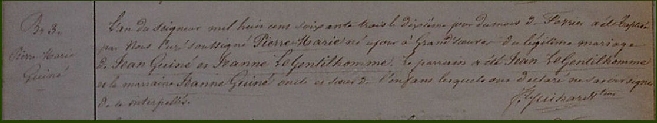 Bt 3.
Pierre Marie
Guiné
L'an du seigneur mil huit cent soixante trois le dixième jour du mois de Février a été baptisé
par Nous Curé soussigné Pierre-Marie né a Grand du légitime mariage
de Jean Guiné et Jeanne Le Gentilhomme. Le parrain a été Jean Le Gentilhomme
et la marraine Jeanne Guiné oncle et de l'enfant lesquels ont déclaré ne savoir signer
de ce interpellés.